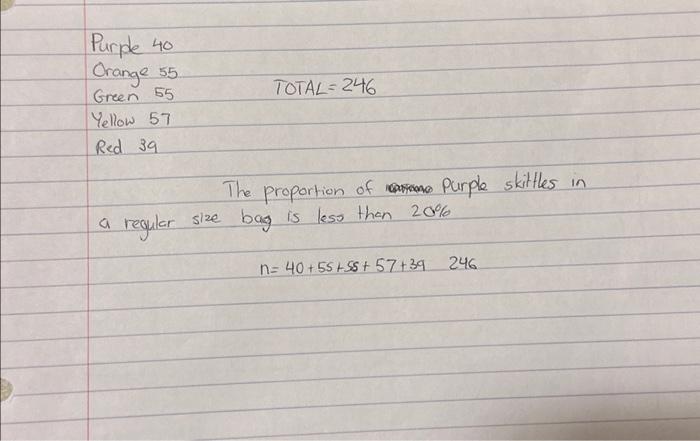 Purple 40
Orange 55
Green 55
TOTAL = 246
Yellow 57
Red 39
The proportion of Purple skittles in
a regular size bag is less than 20%
n= 40+55+55+57+39 246